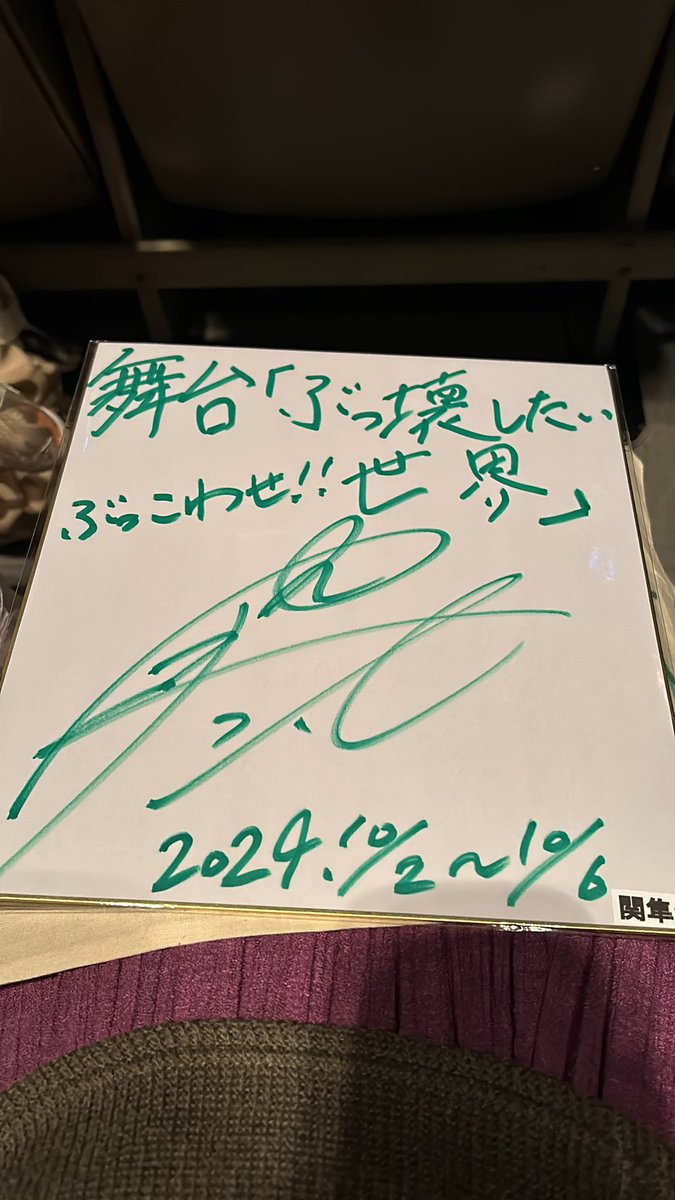 舞台「ぶっ壊したい
ぶっこわせ!!世界」
2024.10/2〜10/6
関隼